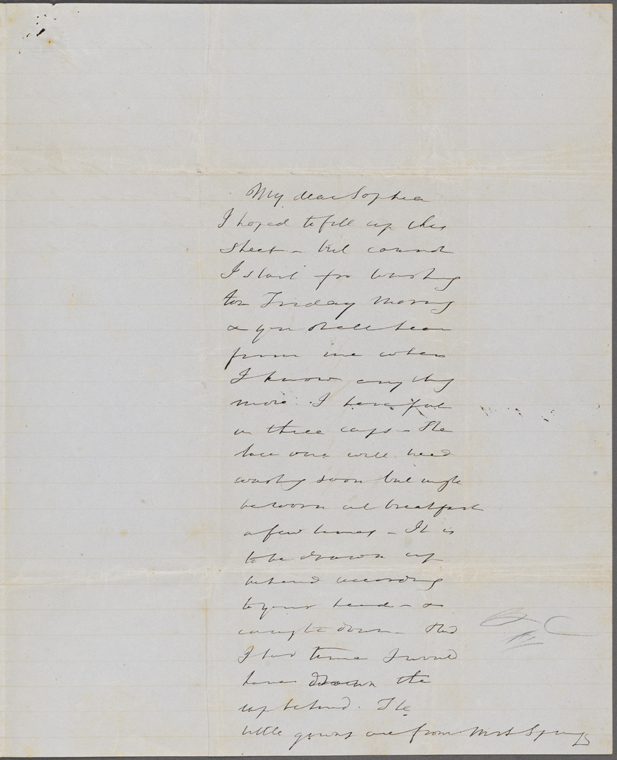 My dear Sophia
I hoped to fill up this
sheet - but cannot
I start for Washing
ton Friday morning
& you shall hear
from me when
I know any thing
more. I have put
in three caps - The
lace one will need
washing soon but might
be worn at breakfast
a few times - It is
to be drawn up
behind according
to your head - &
caught down - Had
I had time I would
have drawn the
cap behind. The
little gowns are from Mrs Spring